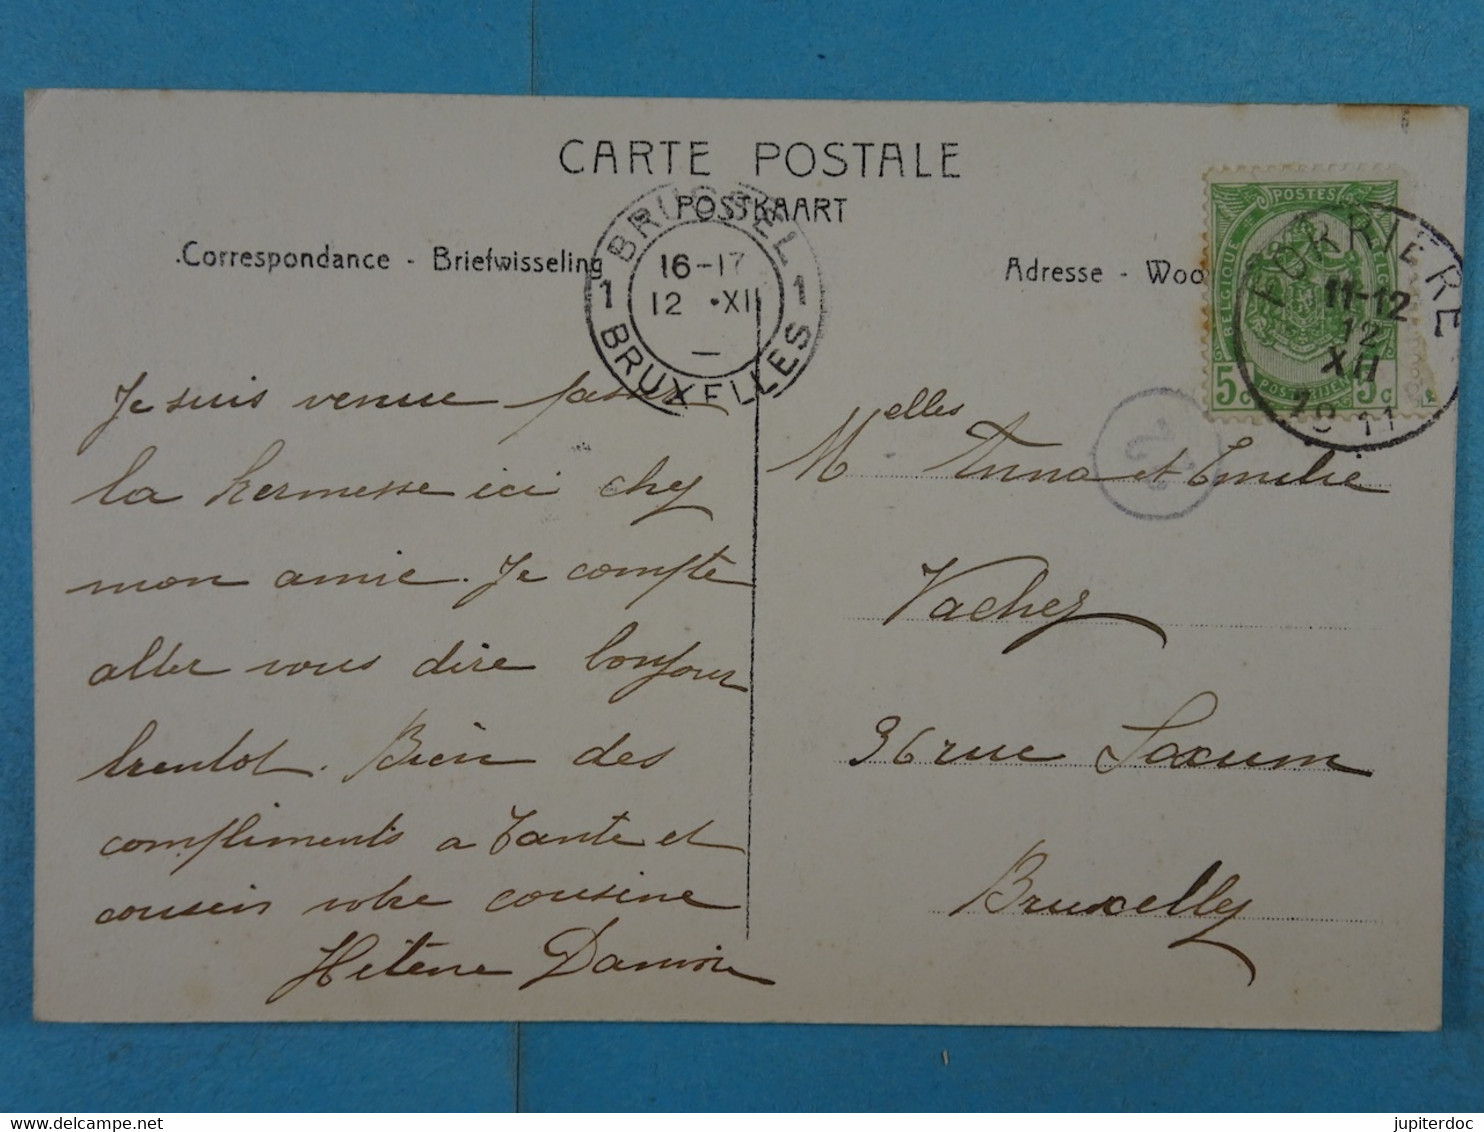 CARTE POSTALE
POSTKAART
Correspondance - Briefwisseling
Adresse - Woo
BRUSSEL
1 16-17 1
12 •XII
BRUXELLES
POSTES
BELGIQUE BELGI
5c 5c
POSTERIJEN
FORRIÈRE
11-12
12
XII
1911
Je suis venue passer
la kermesse ici chez
mon amie. Je compte
aller vous dire bonjour
bientot. Bien des
compliments a Tante et
cousin votre cousine
Hélène
Melles Anna et Emelie
Vachez
36 rue
Bruxelles
delcampe.net
jupiterdoc